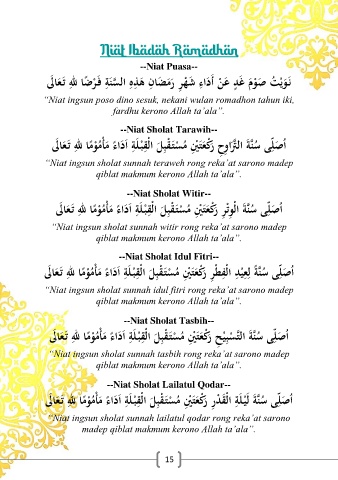 Niat Ibadah Ramadhan
--Niat Puasa--
نَوَيْتُ صَوْمَ غَدٍ عَنْ أَدَاءِ شَهْرِ رَمَضَانِ هَذِهِ السَّنَةِ فَرْضًا لِلّٰهِ تَعَالَى
“Niat ingsun poso dino sesuk, nekani wulan romadhon tahun iki,
fardhu kerono Allah ta’ala”.
--Niat Sholat Tarawih--
اُصَلِّى سُنَّةَ التَّرَاوِحِ رَكْعَتَيْنِ مُسْتَقْبِلَ الْقِبْلَةِ اَدَاءً مَأْمُوْمًا لِلّٰهِ تَعَالَى
“Niat ingsun sholat sunnah teraweh rong reka’at sarono madep
qiblat makmum kerono Allah ta’ala”.
--Niat Sholat Witir--
اُصَلِّى سُنَّةَ الْوِتْرِ رَكْعَتَيْنِ مُسْتَقْبِلَ الْقِبْلَةِ اَدَاءً مَأْمُوْمًا لِلّٰهِ تَعَالَى
“Niat ingsun sholat sunnah witir rong reka’at sarono madep
qiblat makmum kerono Allah ta’ala”.
--Niat Sholat Idul Fitri--
اُصَلِّى سُنَّةً لِعِيْدِ الْفِطْرِ رَكْعَتَيْنِ مُسْتَقْبِلَ الْقِبْلَةِ اَدَاءً مَأْمُوْمًا لِلّٰهِ تَعَالَى
“Niat ingsun sholat sunnah idul fitri rong reka’at sarono madep
qiblat makmum kerono Allah ta’ala”.
--Niat Sholat Tasbih--
اُصَلِّى سُنَّةَ التَّسْبِيْحِ رَكْعَتَيْنِ مُسْتَقْبِلَ الْقِبْلَةِ اَدَاءً مَأْمُوْمًا لِلّٰهِ تَعَالَى
“Niat ingsun sholat sunnah tasbih rong reka’at sarono madep
qiblat makmum kerono Allah ta’ala”.
--Niat Sholat Lailatul Qodar--
اُصَلِّى سُنَّةَ لَيْلَةِ الْقَدْرِ رَكْعَتَيْنِ مُسْتَقْبِلَ الْقِبْلَةِ اَدَاءً مَأْمُوْمًا لِلّٰهِ تَعَالَى
“Niat ingsun sholat sunnah lailatul qodar rong reka’at sarono
madep qiblat makmum kerono Allah ta’ala”.
15